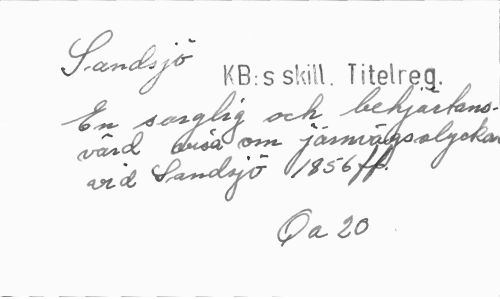 Sandsjö
KB:s skill. Titelreg.
En sorglig och behjärtans-
värd visa om järnvägsolyckan
vid Sandsjö 1856 ff.
Qa 20